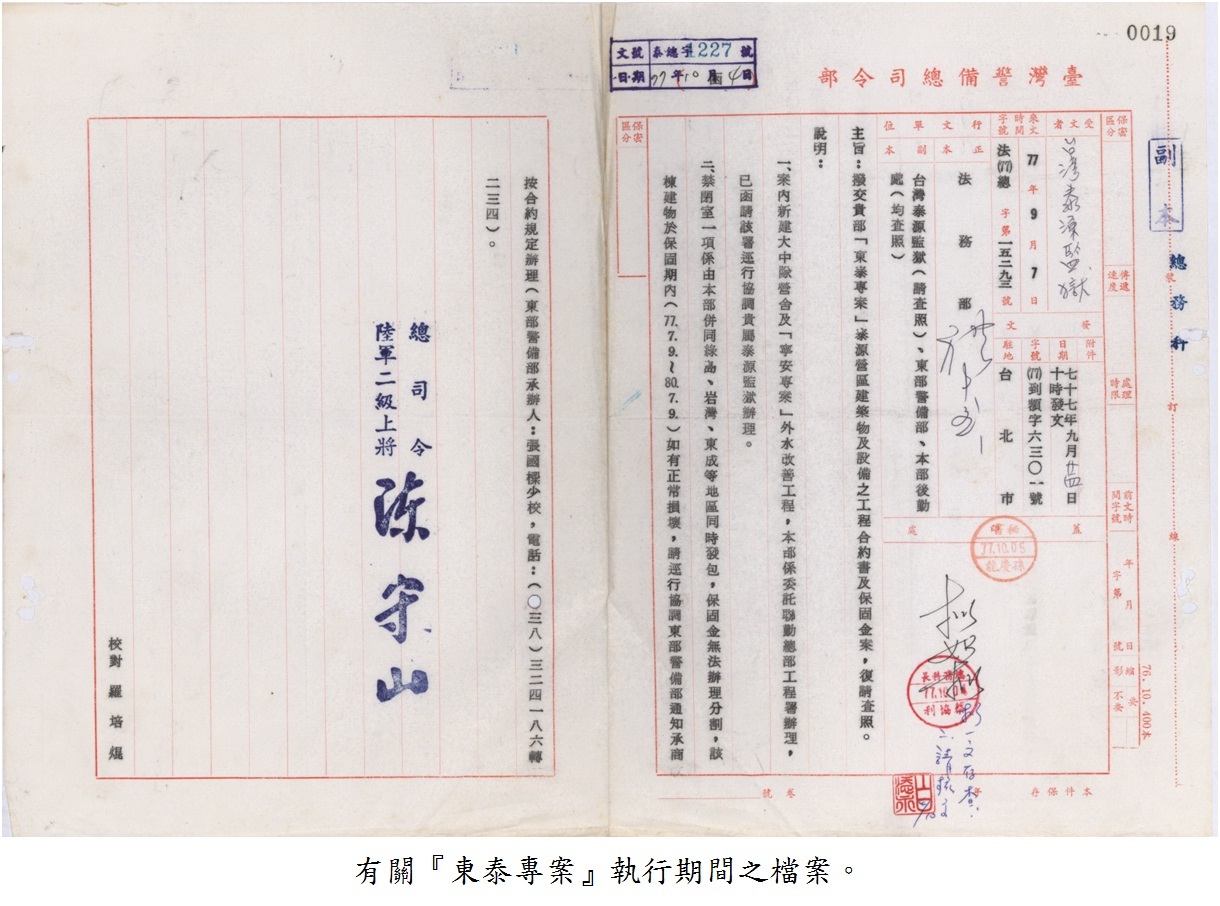 0019
副本
總務科
文號 泰總字1227號
日期 77年10月4日
臺灣警備總司令部
保密區分
受文者
台灣泰源監獄
傳遞速度
處理時限
前文時間字號
年 月 日
字第 號
來文時間字號
77年9月7日
法(77)總字第一五二九三號
行文單位
正本
法務部
副本
台灣泰源監獄（請查照）、東部警備部、本部後勤
處（均查照）
發文
附件
日期
七十七年九月廿四日
十時發文
字號
(77)到領字六三〇一號
駐地
台北市
主旨：撥交貴部「東泰專案」泰源營區建築物及設備之工程合約書及保固金案，復請查照。
說明：
一、案內新建大中隊營舍及「寧安專案」外水改善工程，本部係委託聯勤總部工程署辦理，
已函請該署逕行協調貴屬泰源監獄辦理。
二、禁閉室一項係由本部併同綠島、岩灣、東成等地區同時發包，保固金無法辦理分割，該
棟建物於保固期內（77.7.9.～80.7.9.）如有正常損壞，請逕行協調東部警備部通知承商
保密區分
77.10.05
擬一、文存查。
76.10.400本
裝訂線
本件保存
卷號
按合約規定辦理（東部警備部承辦人：張國樑少校，電話：（〇三八）三二四一八六轉
二三四）。
總司令
陸軍二級上將 陳守山
校對 羅培焜
有關『東泰專案』執行期間之檔案。